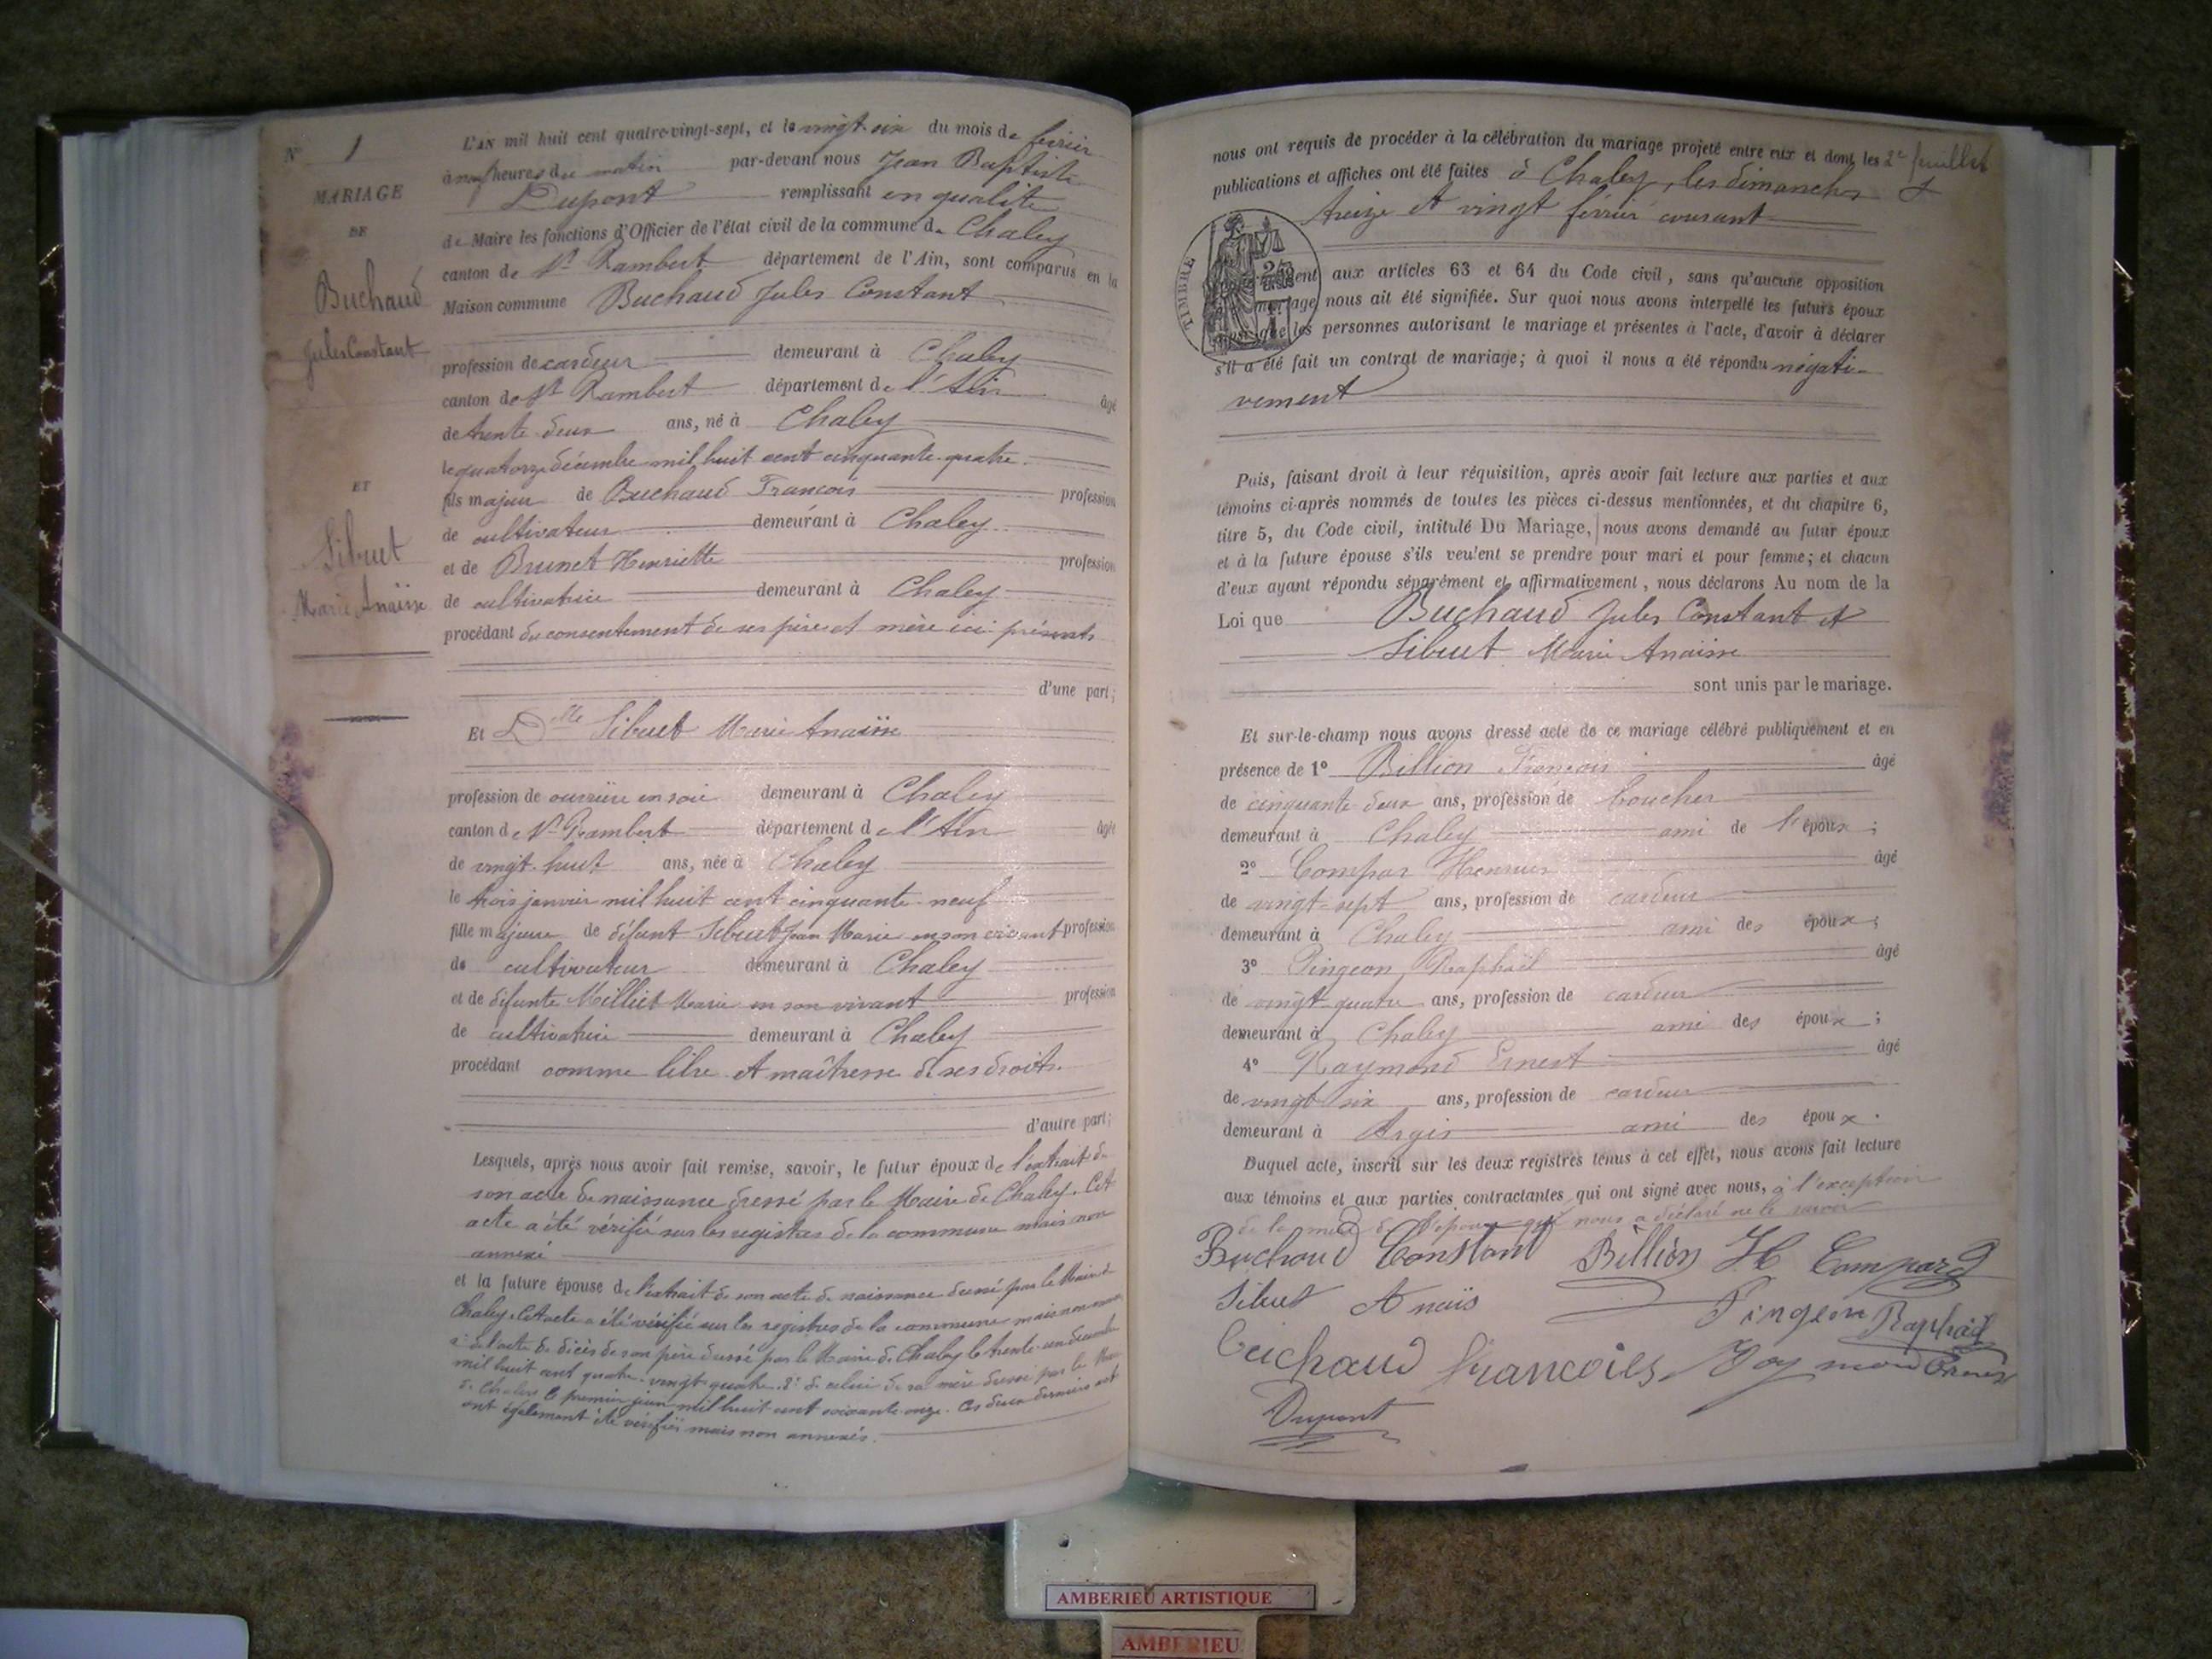 N° 1
MARIAGE
DE
Buchaud
Jules Constant
ET
Sibuet
Marie Anaïsse
L'AN mil huit cent quatre-vingt-sept, et le vingt-six du mois de février
à neuf heures du matin par-devant nous Jean Baptiste
Dupont remplissant en qualité
de Maire les fonctions d'Officier de l'état civil de la commune de Chaley
canton de St Rambert département de l'Ain, sont comparus en la
Maison commune Buchaud Jules Constant
profession de cardeur demeurant à Chaley
canton de St Rambert département de l'Ain âgé
de trente-deux ans, né à Chaley
le quatorze décembre mil huit cent cinquante-quatre
fils majeur de Buchaud François profession
de cultivateur demeurant à Chaley
et de Brunet Henriette profession
de cultivatrice demeurant à Chaley
procédant du consentement de ses père et mère ici présents
d'une part;
Et Dlle Sibuet Marie Anaïsse
profession de ouvrière en soie demeurant à Chaley
canton de St Rambert département de l'Ain âgée
de vingt-huit ans, née à Chaley
le trois janvier mil huit cent cinquante-neuf
fille majeure de défunt Sibuet Jean Marie en son vivant profession
de cultivateur demeurant à Chaley
et de défunte Milliet Marie en son vivant profession
de cultivatrice demeurant à Chaley
procédant comme libre et maîtresse de ses droits.
d'autre part;
Lesquels, après nous avoir fait remise, savoir, le futur époux de l'extrait de
son acte de naissance dressé par le Maire de Chaley. Cet
acte a été vérifié sur les registres de la commune mais non
annexé
et la future épouse de l'extrait de son acte de naissance dressé par le Maire de
Chaley. Cet acte a été vérifié sur les registres de la commune mais non
de l'acte de décès de son père dressé par le Maire de Chaley le trente-un décembre
mil huit cent quatre-vingt-quatre. 2° de celui de sa mère dressé par le Maire
de Chaley le premier juin mil huit cent soixante-onze. Ces deux derniers
ont également été vérifiés mais non annexés.
nous ont requis de procéder à la célébration du mariage projeté entre eux et dont les 2e feuillet
publications et affiches ont été faites à Chaley, les dimanches
treize et vingt février courant
TIMBRE
aux articles 63 et 64 du Code civil, sans qu'aucune opposition
mariage nous ait été signifiée. Sur quoi nous avons interpellé les futurs époux
ainsi que les personnes autorisant le mariage et présentes à l'acte, d'avoir à déclarer
s'il a été fait un contrat de mariage; à quoi il nous a été répondu négati-
vement
Puis, faisant droit à leur réquisition, après avoir fait lecture aux parties et aux
témoins ci-après nommés de toutes les pièces ci-dessus mentionnées, et du chapitre 6,
titre 5, du Code civil, intitulé Du Mariage, nous avons demandé au futur époux
et à la future épouse s'ils veulent se prendre pour mari et pour femme; et chacun
d'eux ayant répondu séparément et affirmativement, nous déclarons Au nom de la
Loi que Buchaud Jules Constant et
Sibuet Marie Anaïsse
sont unis par le mariage.
Et sur-le-champ nous avons dressé acte de ce mariage célébré publiquement et en
présence de 1° Billion François âgé
de cinquante-deux ans, profession de boucher
demeurant à Chaley ami de l'époux;
2° Compar âgé
de vingt-sept ans, profession de cardeur
demeurant à Chaley ami des époux;
3° Pingeon Raphaël âgé
de vingt-quatre ans, profession de cardeur
demeurant à Chaley ami des époux;
4° Raymond Ernest âgé
de vingt six ans, profession de cardeur
demeurant à Argis ami des époux.
Duquel acte, inscrit sur les deux registres tenus à cet effet, nous avons fait lecture
aux témoins et aux parties contractantes qui ont signé avec nous, à l'exception
de la mère de l'époux qui nous a déclaré ne le savoir
Buchaud Constant Billion H Compard
Sibuet Anaïs Pingeon Raphaël
Buchaud François Raymond Ernest
Dupont
AMBERIEU ARTISTIQUE
AMBERIEU